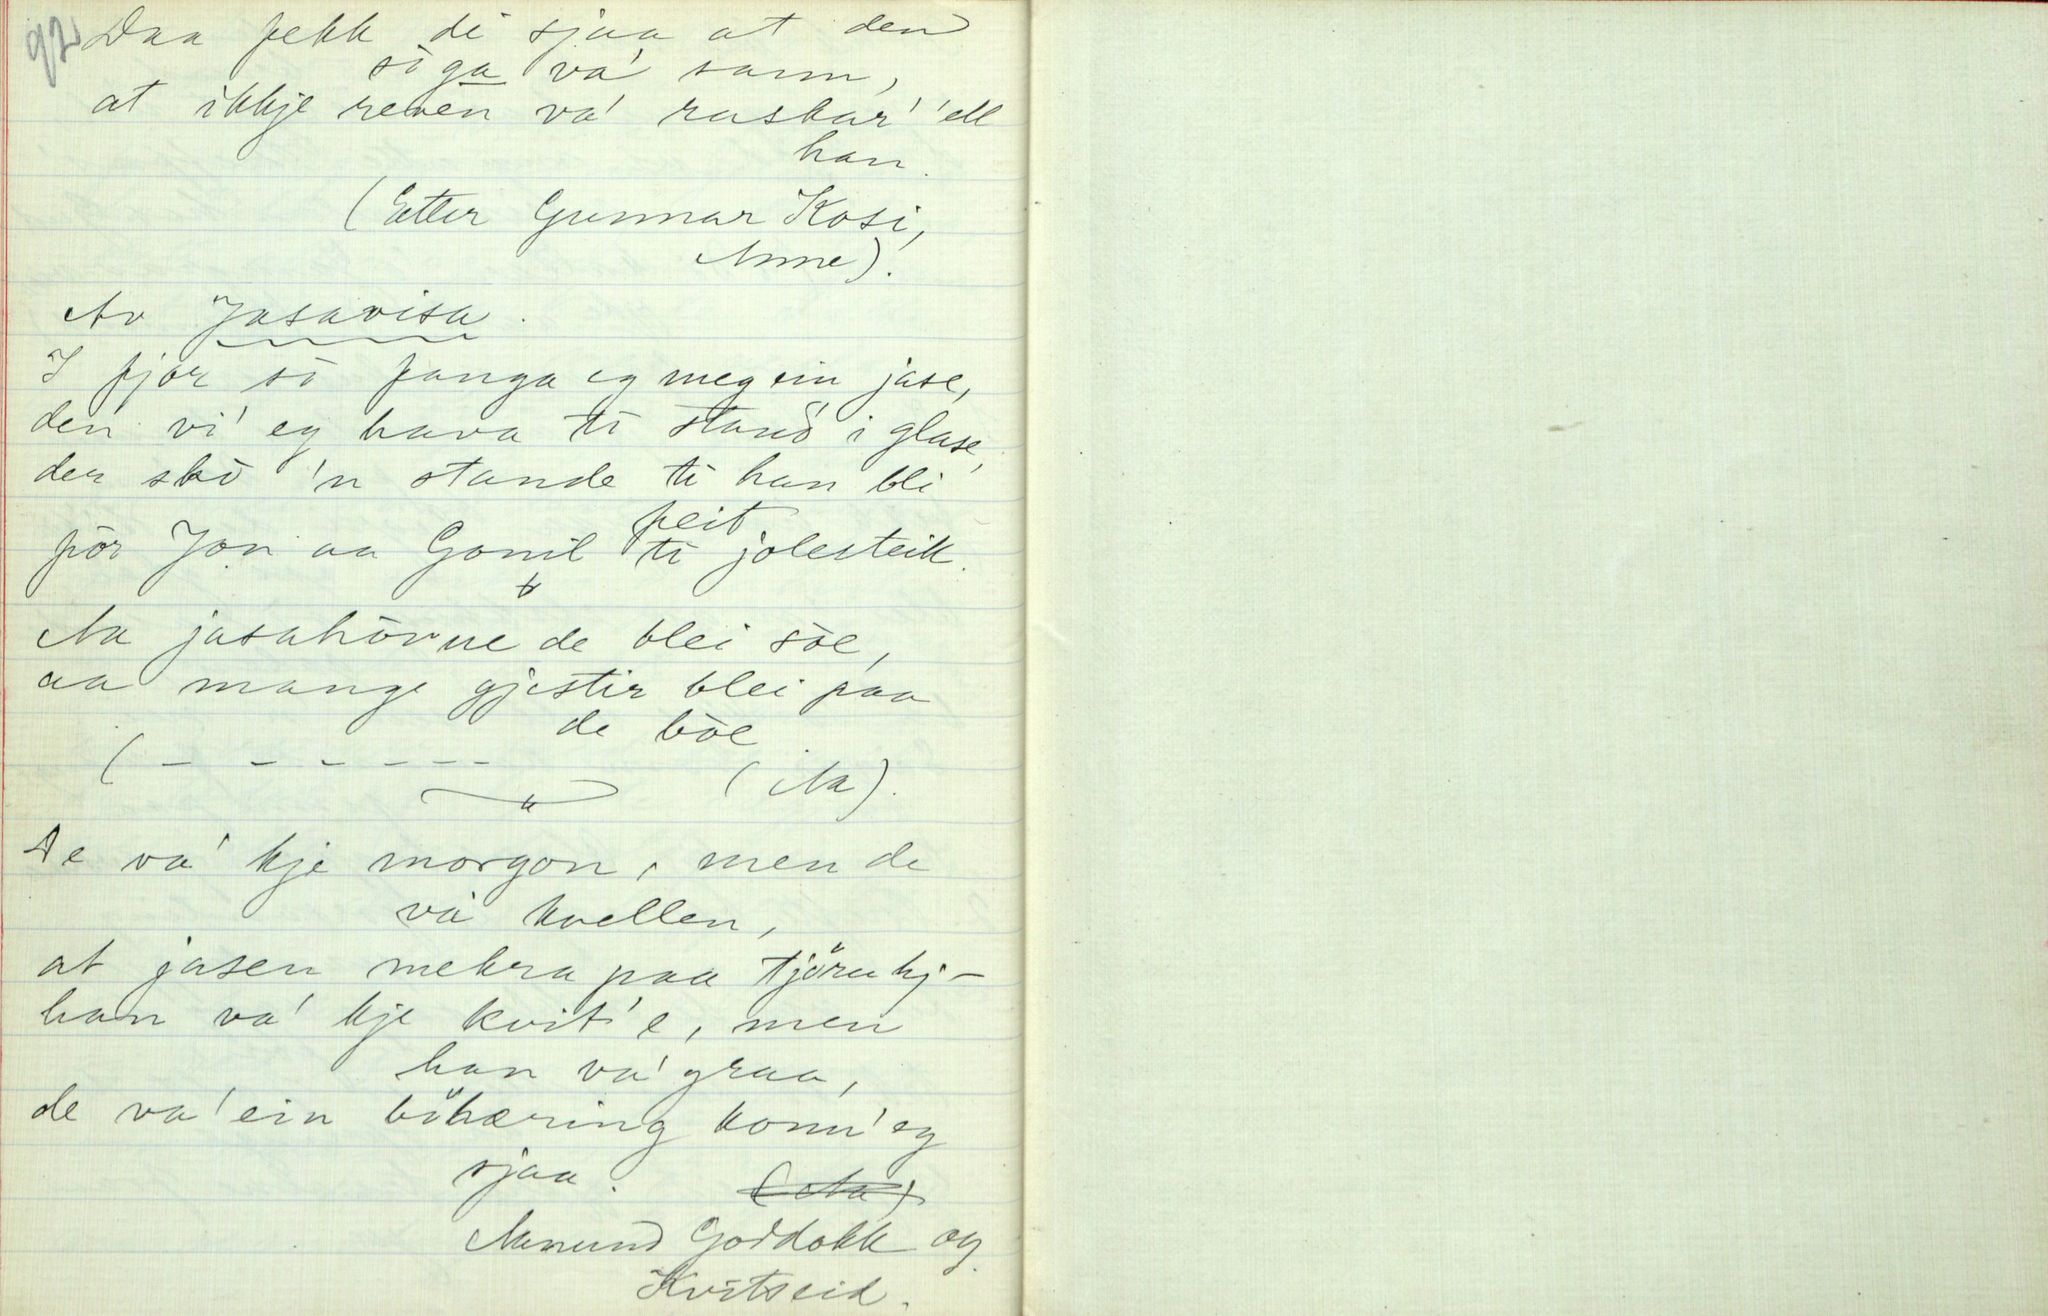 92
Daa fekk di sjaa at den
siga va' sann,
at ikkje reven va' raskar' 'ell
han.
(Etter Gunnar Kosi,
Anne).
Av Jasavisa.
I fjor so fanga eg meg ein jase,
den vi' eg hava ti stand i glase,
der sko 'n stande ti han bli
feit
för Jon aa Gonil ti jolesteik.
Aa jasahövue de blei söe,
aa mange gjestir blei paa
de böe
( – – – – – –
(Aa).
De va' kje morgon, men de
va' kvellen,
at jasen mekra paa
han va' kje kvit'e, men
han va' graa,
de va' ein böhæring konn' eg
sjaa.
(Aa)
Aamund Goddokk og
Kvitseid.